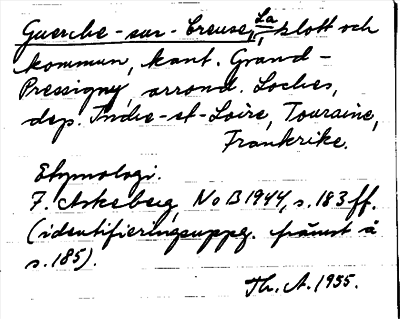 Guerche-sur-Creuse, La, slott och
kommun, kant. Grand-
Pressigny, arrond. Loches,
dep. Indre-et-Loire, Touraine,
Frankrike.
Etymologi.
F. Askeberg, NoB 1944, s. 183 ff.
(identifieringsuppg. främst å
s. 185).
Th. A. 1955.